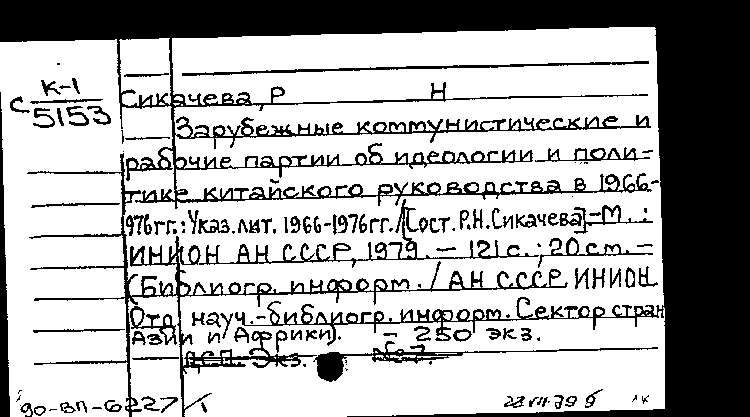 К-1
С 5153
Сикачева, Р Н
Зарубежные коммунистические и
рабочие партии об идеологии и поли-
тике китайского руководства в 1966-
976гг.: Указ.лит. 1966-1976гг./[Сост. Р.Н.Сикачева].-М. :
ИНИОН АН СССР, 1979. - 121с.; 20см. -
(Библиогр. информ. / АН СССР. ИНИОН.
Отд. науч.-библиогр. информ. Сектор стран
Азии и Африки). - 250 экз.
ДСП. Экз. №7.
90-ВП-6227/1